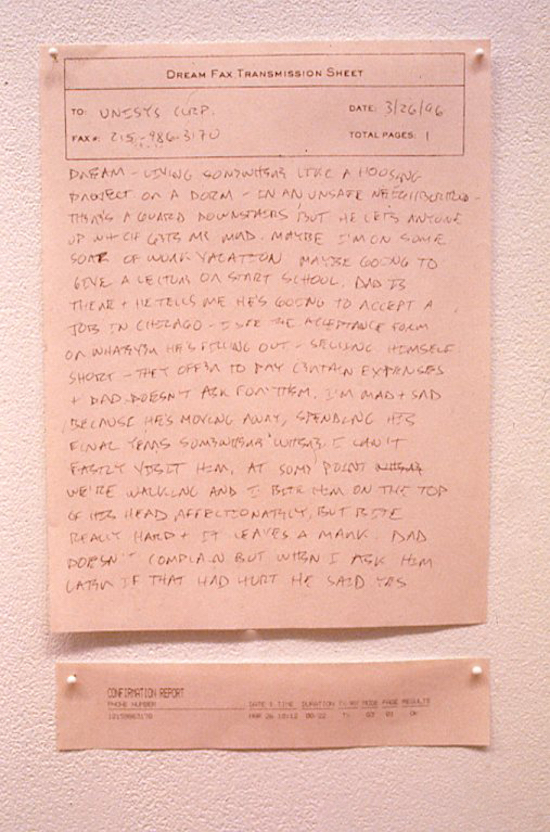 DREAM FAX TRANSMISSION SHEET
TO: UNISYS CORP. DATE: 3/26/96
FAX #: 215-986-3170 TOTAL PAGES: 1
DREAM - LIVING SOMEWHERE LIKE A HOUSING
PROJECT OR A DORM - IN AN UNSAFE NEIGHBORHOOD -
THERE'S A GUARD DOWNSTAIRS BUT HE LETS ANYONE
UP WHICH GETS ME MAD. MAYBE I'M ON SOME
SORT OF WORK VACATION MAYBE GOING TO
GIVE A LECTURE OR START SCHOOL. DAD IS
THERE + HE TELLS ME HE'S GOING TO ACCEPT A
JOB IN CHICAGO - I SEE THE ACCEPTANCE FORM
OR WHATEVER HE'S FILLING OUT - SELLING HIMSELF
SHORT - THEY OFFER TO PAY CERTAIN EXPENSES
+ DAD DOESN'T ASK FOR THEM. I'M MAD + SAD
BECAUSE HE'S MOVING AWAY, SPENDING HIS
FINAL YEARS SOMEWHERE WHERE I CAN'T
EASILY VISIT HIM. AT SOME POINT
WE'RE WALKING AND I BITE HIM ON THE TOP
OF HIS HEAD, AFFECTIONATELY, BUT BITE
REALLY HARD + IT LEAVES A MARK. DAD
DOESN'T COMPLAIN BUT WHEN I ASK HIM
LATER IF THAT HAD HURT HE SAID YES
CONFIRMATION REPORT
PHONE NUMBER DATE & TIME DURATION MODE PAGE RESULTS
12159863170 MAR 26 00:22 03 01 OK